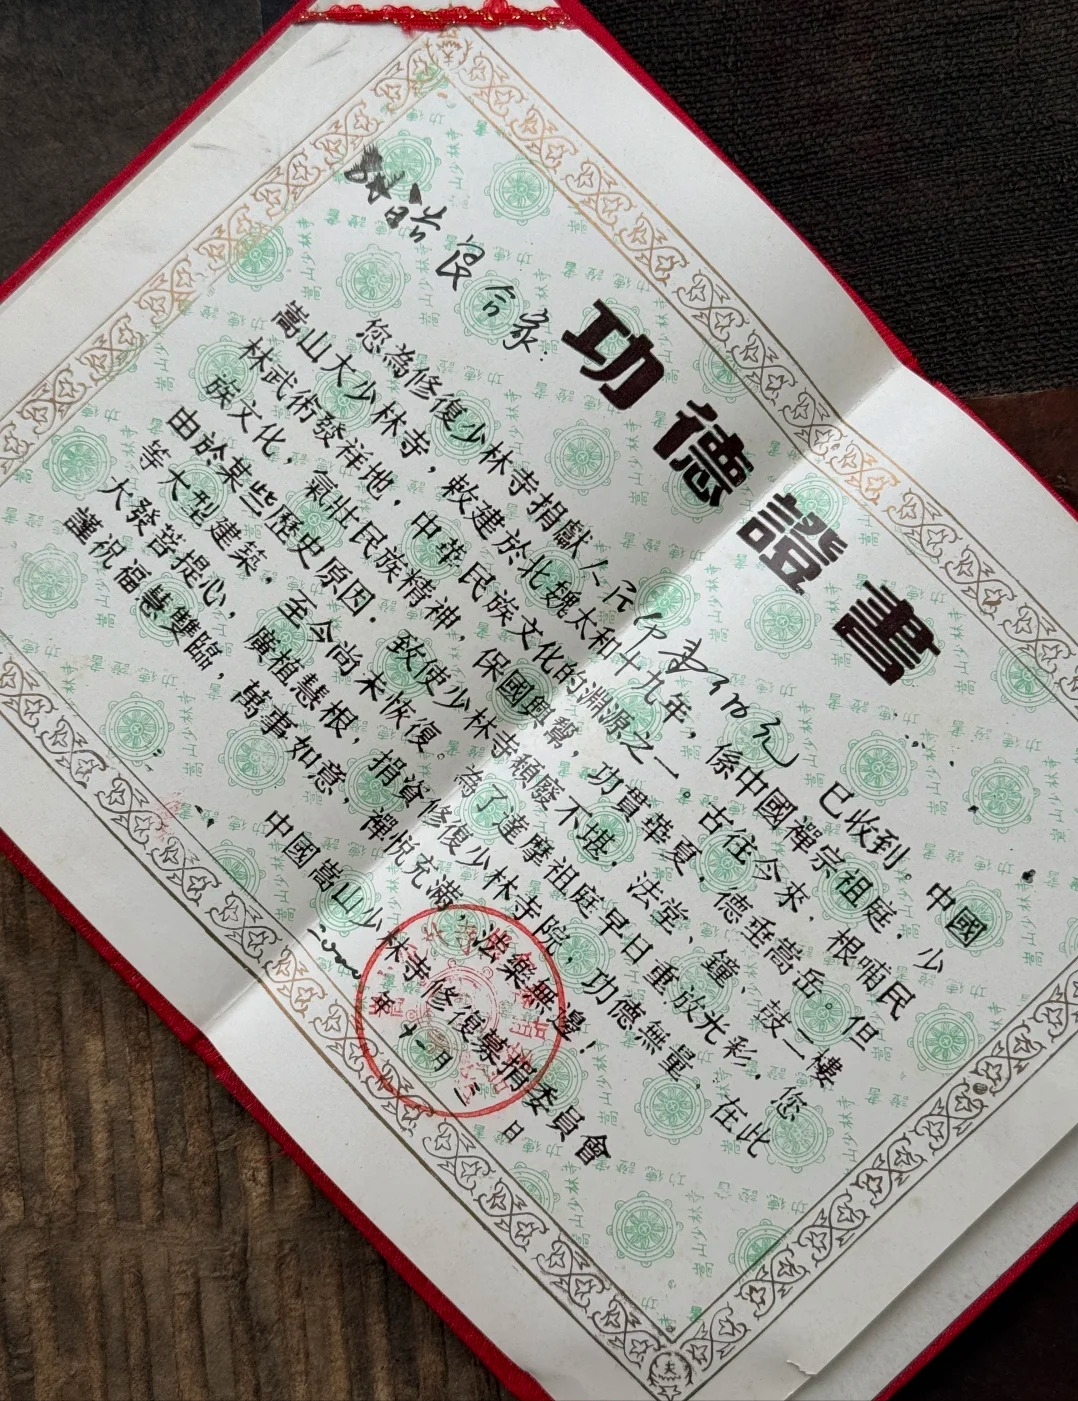 功德證書
合家:
您為修復少林寺捐獻人民币 已收到。中國
嵩山大少林寺，敕建於北魏太和十九年，係中國禪宗祖庭，少
林武術發祥地，中華民族文化的淵源之一。古往今來，根哺民
族文化，氣壯民族精神，保國 ，功貫華夏，德垂嵩岳。但
由於某些歷史原因．致使少林寺頹發不堪．法堂、鐘、鼓二樓
等大型建築，至今尚未恢復。為了達摩祖庭早日重放光彩，您
大發菩提心，廣植慧根，捐資修復少林寺院，功德無量，在此
謹祝福慧雙臨，萬事如意，禪悅充滿，法樂無邊！
中國嵩山少林寺修復募捐委員會
2000年十一月三日